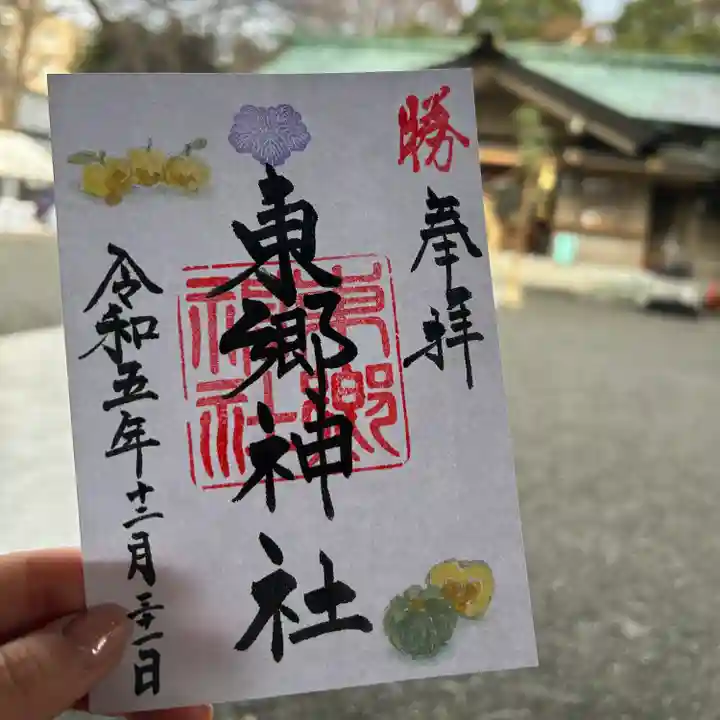 勝
奉拝
東郷神社
東郷
神社
令和五年十二月二十一日